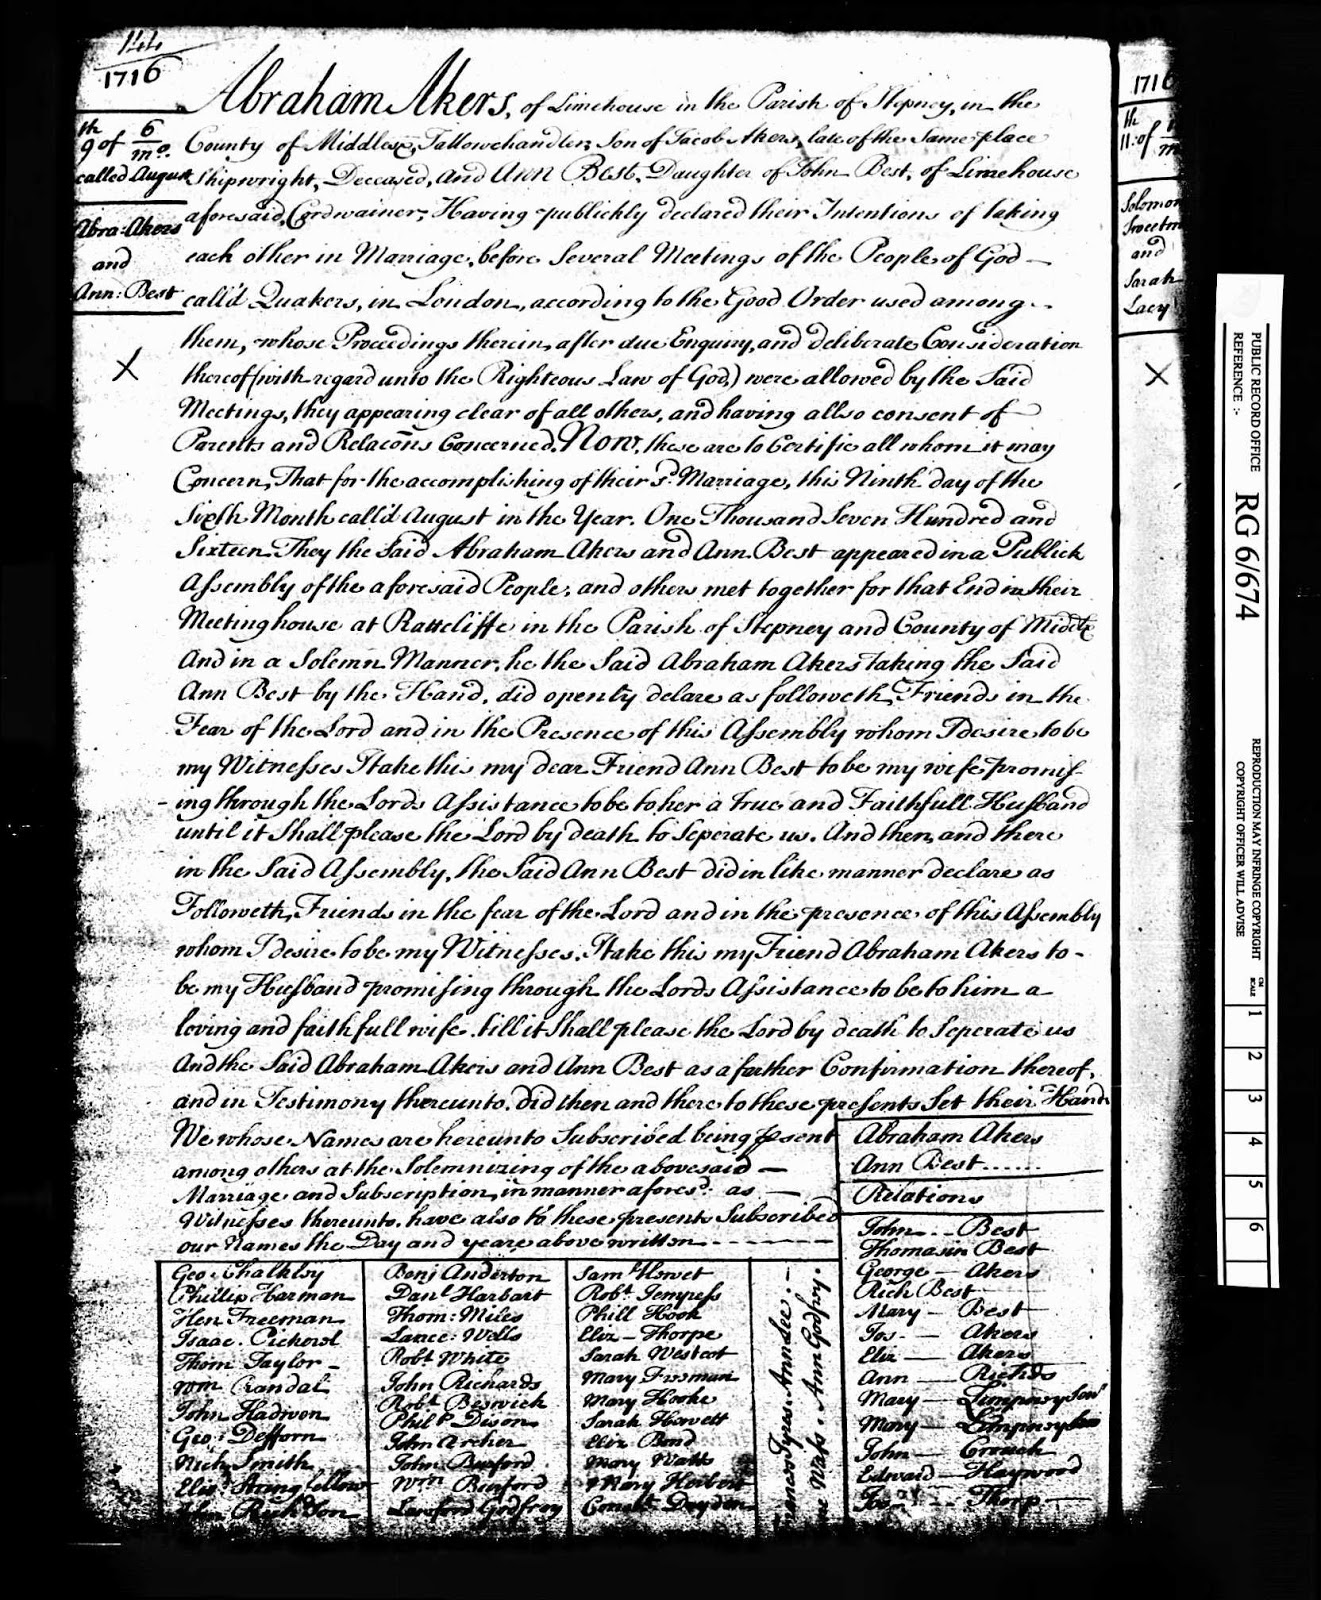 144
1716
9th of 6/mo.
called August
Abra: Akers
and
Ann: Best
X
Abraham Akers, of Limehouse in the Parish of Stepney, in the
County of Middlesex, Tallowchandler, Son of Jacob Akers, late of the Same place
Shipwright, Deceased, And Ann Best, Daughter of John Best, of Limehouse
aforesaid, Cordwainer, Having publickly declared their Intentions of taking
each other in Marriage, before Several Meetings of the People of God —
call'd Quakers, in London, according to the Good Order used among
them, whose Proceedings therein, after due Enquiry, and deliberate Consideration
thereof (with regard unto the Righteous Law of God,) were allowed by the Said
Meetings, they appearing clear of all others, and having allso consent of
Parents and Relacõns Concerned. Now, these are to Certifie all whom it may
Concern, That for the accomplishing of their sd. Marriage, this Ninth day of the
Sixth Month call'd August in the Year. One Thousand Seven Hundred and
Sixteen. They the Said Abraham Akers and Ann Best appeared in a Publick
Assembly of the aforesaid People, and others met together for that End in their
Meetinghouse at Rattcliffe in the Parish of Stepney and County of Middx
And in a Solemn Manner, he the Said Abraham Akers taking the Said
Ann Best by the Hand, did openly delare as followeth, Friends in the
Fear of the Lord and in the Presence of this Assembly whom I desire to be
my Witnesses I take this my dear Friend Ann Best to be my wife promis-
ing through the Lords Assistance to be to her a true and Faithfull Husband
until it Shall please the Lord by death to Seperate us. And then, and there
in the Said Assembly, the Said Ann Best did in like manner declare as
Followeth, Friends in the fear of the Lord and in the presence of this Assembly
whom I desire to be my Witnesses. I take this my Friend Abraham Akers to -
be my Husband promising through the Lords Assistance to be to him a
loving and faithfull wife till it Shall please the Lord by death to Seperate us
And the Said Abraham Akers and Ann Best as a farther Confirmation thereof,
and in Testimony thereunto. did then and there to these presents Set their Hands
We whose Names are hereunto Subscribed being present
among others at the Solemnizing of the abovesaid —
Marriage and Subscription, in manner aforesd. as —
Witnesses thereunto. have also to these presents Subscribed
our Names the Day and yeare above written
Abraham Akers
Ann Best
Relations
John Best
Thomasin Best
George Akers
Rich Best
Mary Best
Jos. Akers
Eliz Akers
Ann Richds
Mary
Mary
John Crouch
Edward Haywood
Thorp
Geo: Chalkley
Phillip Harman
Hen Freeman
Isaac Pickerd
Thom Taylor
Wm Crandal
John Hadwen
Geo: Defforn
Nich Smith
Eliz: Stringfellow
John Richdson
Benj Anderton
Danl Harbart
Thom: Miles
Lance: Wells
Robt White
John Richards
Robt Beswick
Philp Dison
John Archer
John Burford
Wm Burford
Lanford Godfroy
Saml Howet
Robt Tempess
Phill Hook
Eliz Thorpe
Sarah Westcot
Mary Freeman
Mary Hooke
Sarah Howett
Eliz Bond
Mary Watts
Mary Herbert
Dryden
Tyes. Ann Lee.
Wase. Ann Godfry.
1716
11th of
Solomon
Sweetm
and
Sarah
Lacy
X
PUBLIC RECORD OFFICE
REFERENCE :-
RG 6/674
REPRODUCTION MAY INFRINGE COPYRIGHT
COPYRIGHT OFFICER WILL ADVISE
CM
SCALE
1
2
3
4
5
6